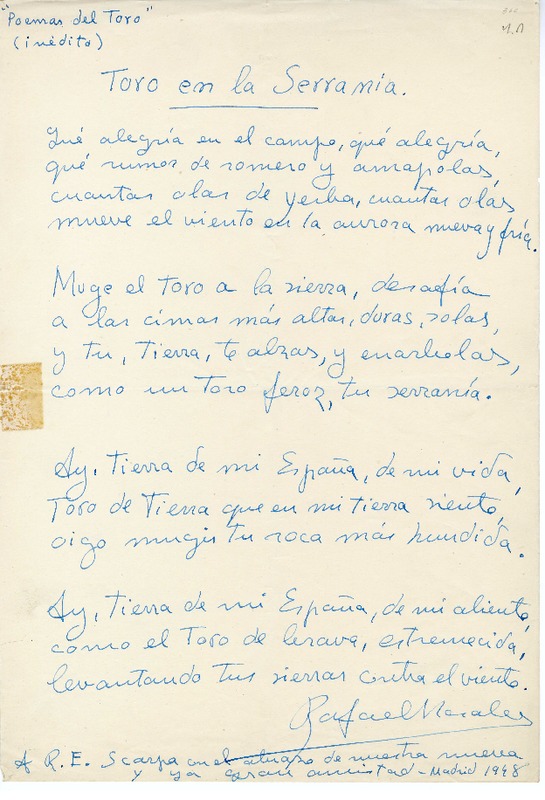 "Poemas del Toro"
(inédito)
Toro en la Serranía.
Qué alegría en el campo, qué alegría,
qué rumor de romero y amapolas,
cuantas olas de yerba, cuantas olas
mueve el viento en la aurora nueva y fría.
Muge el toro a la sierra, desafía
a las cimas más altas, duras, solas,
y tu, Tierra, te alzas, y enarbolas,
como un Toro feroz, tu serranía.
Ay, Tierra de mi España, de mi vida,
Toro de Tierra que en mi tierra siento,
oigo mugir tu roca más hundida.
Ay, Tierra de mi España, de mi aliento,
como el Toro de brava, estremecida,
levantando tus sierras contra el viento.
Rafael Morales
A R. E. Scarpa con el abrazo de nuestra nueva
y ya gran amistad - Madrid 1948